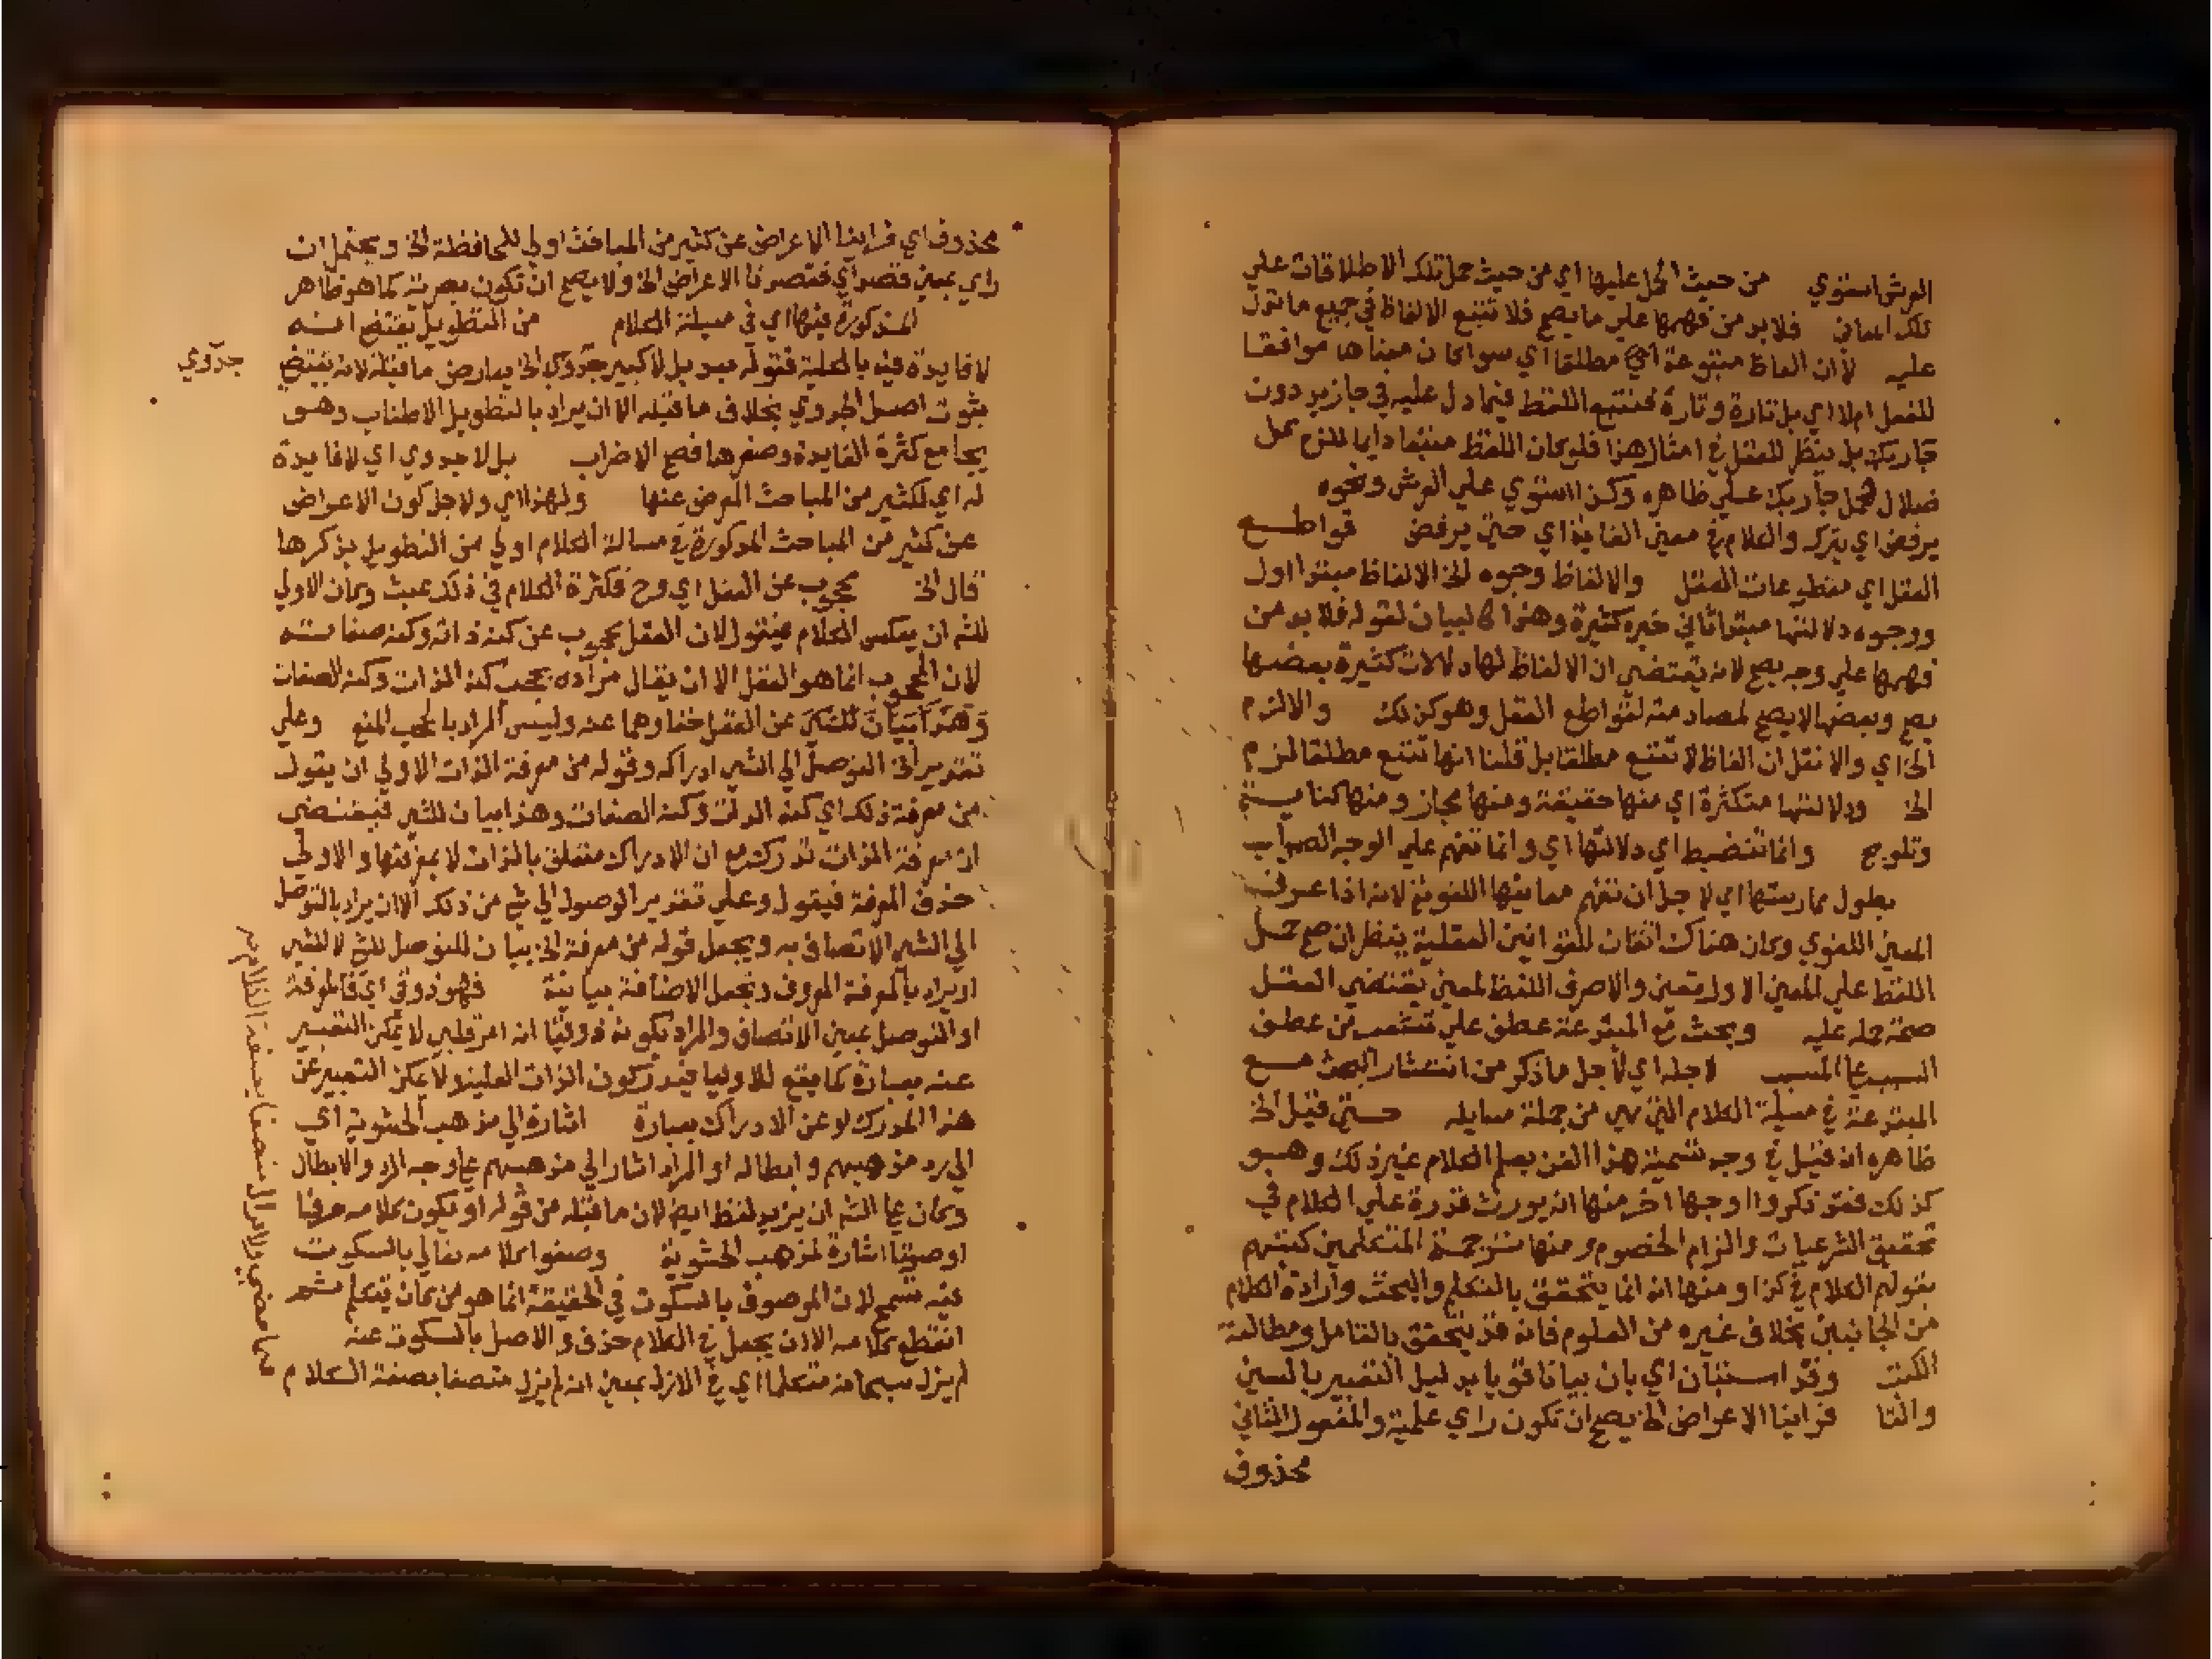 العرش استوي من حيث الحمل عليها اي من حيث حمل تلك الاطلاقات علي
تلك المعاني فلابد من فهمها علي ما يصح فلا تتبع الالفاظ في جميع ما تدل
عليه لان الفاظ متبوعة اي مطلقا اي سوا كان معناها موافقا
للعقل ام لا اي بل تارة وتارة فنتبع اللفظ فيما دل عليه في جا زيد دون
جا ربك بل ينظر للعقل في امثال هذا فلو كان اللفظ متبعا دايما للزم حمل
ضلال لحمل جا ربك علي ظاهره وكذا استوي علي العرش ونحوه
يرفض اي يترك والكلام في معني الغاية اي حتي يرفض قواطع
العقل اي مقطوعات العقل والالفاظ وجوه الخ الالفاظ مبتدا اول
ووجوه دلالتها مبتدا ثاني خبره كثيرة وهذا كالبيان لقوله فلا بد من
فهمها علي وجه يصح لانه يقتضي ان الالفاظ لها دلالات كثيرة بعضها
يصح وبعضها لا يصح لمصادمته لقواطع العقل وهو كذلك والالزم
الخ اي والا نقل ان الفاظ لا تتبع مطلقا بل قلنا انها تتبع مطلقا لزم
الخ ودلالتها متكثرة اي منها حقيقة ومنها مجاز ومنها كناية
وتلويح وانما تنضبط اي دلالتها اي وانما تفهم علي الوجه الصواب
بطول ممارستها اي لاجل ان تفهم معانيها اللغوية لانه اذا عرف
المعني اللغوي وكان هناك اتقان للقوانين العقلية ينظر ان صح حمل
اللفظ علي المعني الاول تعين والا صرف اللفظ لمعني يقتضي العقل
صحة حمله عليه وبحث مع المبتدعة عطف علي تشعب من عطف
السبب علي المسبب لاجله اي لاجل ما ذكر من انتشار البحث مع
المبتدعة في مسيلة الكلام التي هي من جملة مسايله حتي قيل الخ
ظاهره انه قيل في وجه تسمية هذا الفن بعلم الكلام غير ذلك وهو
كذلك فقد ذكروا اوجها اخر منها انه يورث قدرة علي الكلام في
تحقيق الشرعيات والزام الخصوم ومنها ترجمة المتكلمين كتبهم
بقولهم الكلام في كذا ومنها انه انما يتحقق بالتكلم والبحث وارادة الكلام
من الجانبين بخلاف غيره من العلوم فانه قد يتحقق بالتامل ومطالعة
الكتب وقد استبان اي بان بيانا قويا بدليل التعبير بالسين
والتا فراينا الاعراض الخ يصح ان تكون راي علمية والمفعول الثاني
محذوف
محذوف اي فراينا الاعراض عن كثير من المباحث اولي للمحافظة الخ ويحتمل ان
راي بمعني قصد اي فقصدنا الاعراض الخ ولا يصح ان تكون بصرية كما هو ظاهر
المذكورة فيها اي في مسيلة الكلام من التطويل يقتضي انه
لا فايدة فيه بالكلية فقوله بعد بل لا كبير جدوي الخ يعارض ما قبله لانه يقتضي
جدوي
ثبوت اصل الجدوي بخلاف ما قبله الا ان يراد بالتطويل الاطناب وهو
يجامع كثرة الفايدة وصغرها فصح الاضراب بل لا جدوي اي لا فايدة
له اي لكثير من المباحث المعرض عنها ولهذا اي ولاجل كون الاعراض
عن كثير من المباحث المذكورة في مسالة الكلام اولي من التطويل بذكرها
قال الخ محجوب عن العقل اي وح فكثرة الكلام في ذلك عبث وكان الاولي
للشم ان يعكس الكلام فيقول لان العقل محجوب عن كنه ذاته وكنه صفاته
لان المحجوب انما هو العقل الا ان يقال مراده بحجب كنه الذات وكنه الصفات
عن العقل خفاوهما عنه وليس المراد بالحجب المنع وعلي
تقدير الخ التوصل الي الشي ادراكه وقوله من معرفة الذات الاولي ان يقول
من معرفة ذلك اي كنه الذات وكنه الصفات وهذا بيان للشي فيقتضي
ان معرفة الذات تدرك مع ان الادراك متعلق بالذات لا بمعرفتها والاولي
حذف المعرفة فيقول وعلي تقدير الوصول الي شي من ذلك الا ان يراد بالتوصل
الي الشي الاتصاف به ويجعل قوله من معرفة الخ بيان للتوصل للشي لا للشي
او يراد بالمعرفة المعروف وتجعل الاضافة بيانية فهو ذوقي اي فالمعرفة
او التوصل بمعني الاتصاف والمراد بكونه ذوقيا انه امر قلبي لا يمكن التعبير
عنه بعبارة كما يقع للاوليا فيدركون الذات العلية ولا يمكن التعبير عن
هذا المدرك لو عن الادراك بعبارة اشارة الي مذهب الحشوية اي
الي رد مذهبهم وابطاله او المراد اشار الي مذهبهم علي وجه الرد والابطال
وكان علي الشم ان يزيد لفظ ايضا لان ما قبله من قوله او يكون كلامه حرفا
او صوتا اشارة لمذهب الحشوية وصفوا كلامه تعالي بالسكوت
فيه تسمح لان الموصوف بالسكوت في الحقيقة انما هو من كان يتكلم ثم
انقطع كلامه الا ان يجعل في الكلام حذف والاصل بالسكوت عنه
لم يزل سبحانه متكلما اي في الازل بمعني انه لم يزل متصفا بصفة الكلام
فيما مضي ولا يزال متصفا بصفة الكلام